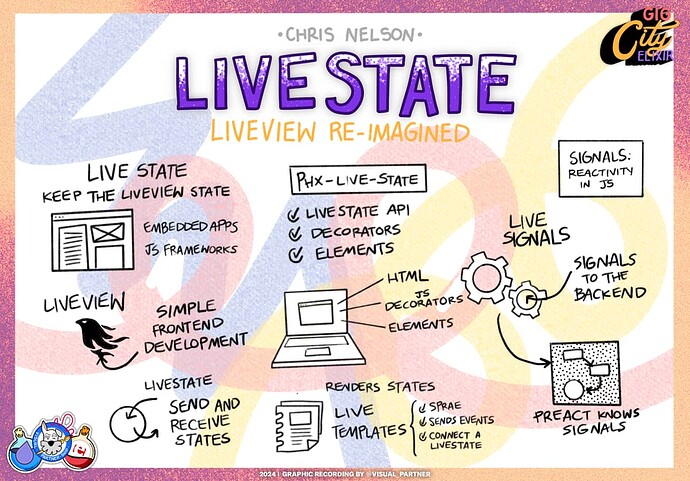 • CHRIS NELSON •
GIG
City
ELIXIR
LIVESTATE
LIVEVIEW RE-IMAGINED
LIVE STATE
KEEP THE LIVEVIEW STATE
EMBEDDED APPS
JS FRAMEWORKS
PHX-LIVE-STATE
LIVESTATE API
DECORATORS
ELEMENTS
SIGNALS:
REACTIVITY
IN JS
LIVE
SIGNALS
SIGNALS
TO THE
BACKEND
LIVEVIEW
SIMPLE
FRONTEND
DEVELOPMENT
HTML
JS
DECORATORS
ELEMENTS
PREACT KNOWS
SIGNALS
LIVESTATE
SEND AND
RECEIVE
STATES
RENDERS STATES
LIVE
TEMPLATES
SPRAE
SENDS EVENTS
CONNECT A
LIVESTATE
2024 | GRAPHIC RECORDING BY @VISUAL_PARTNER